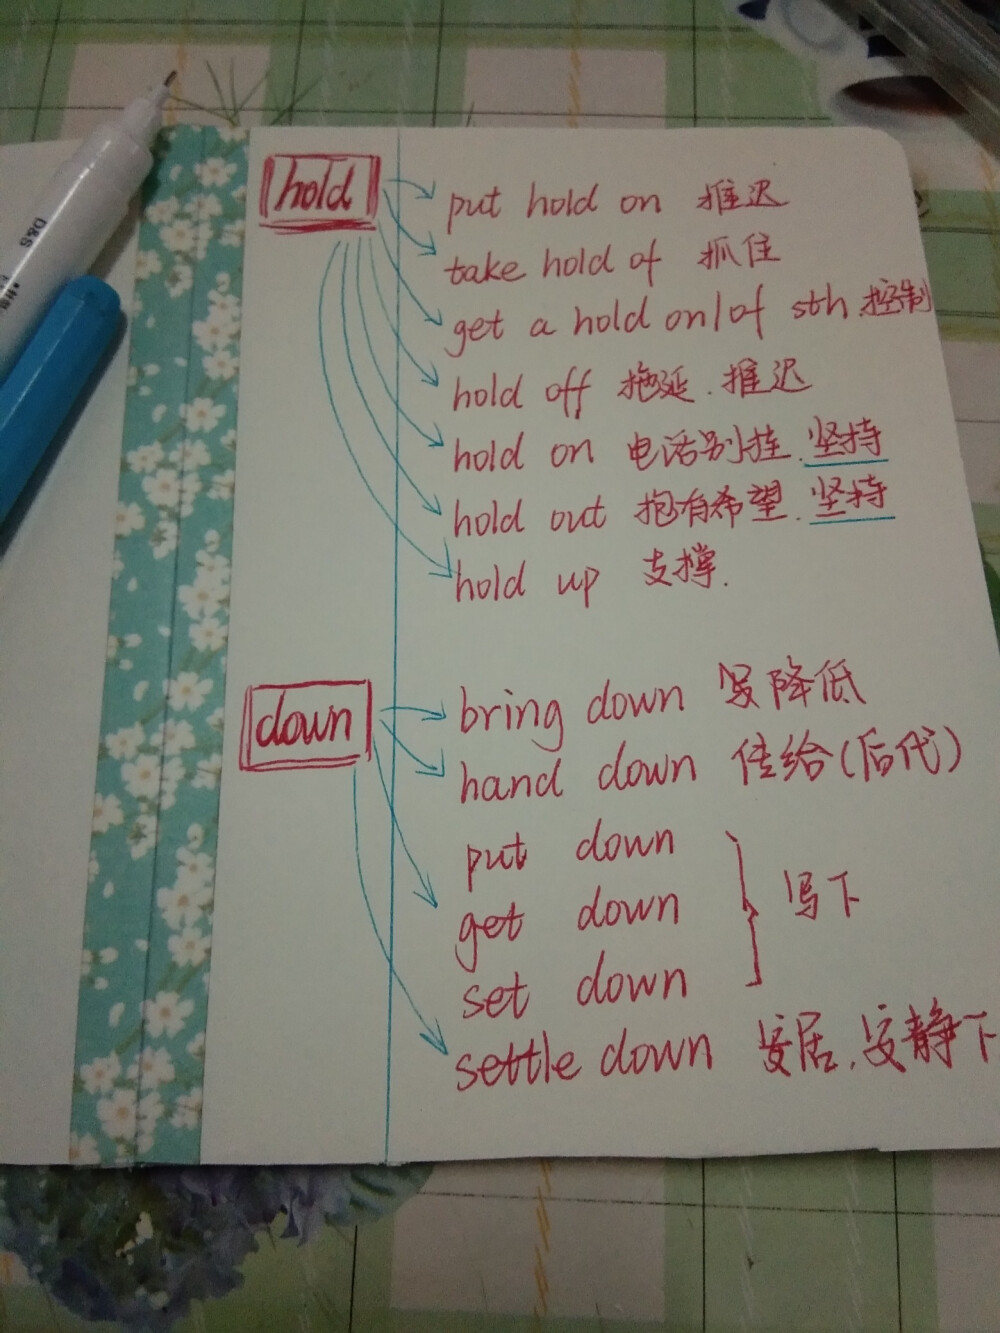 D&S
hold
put hold on 推迟
take hold of 抓住
get a hold on/of sth 控制
hold off 拖延.推迟
hold on 电话别挂.坚持
hold out 抱有希望.坚持
hold up 支撑.
down
bring down 降低
hand down 传给(后代)
put down
get down
写下
set down
settle down 安居.安静下